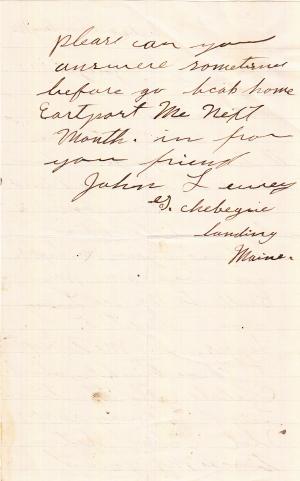 please can you
answere sometime
before go bcab home
Eastport Me Next
Month. in from
your friend
John L
chebegue
landing
Maine.